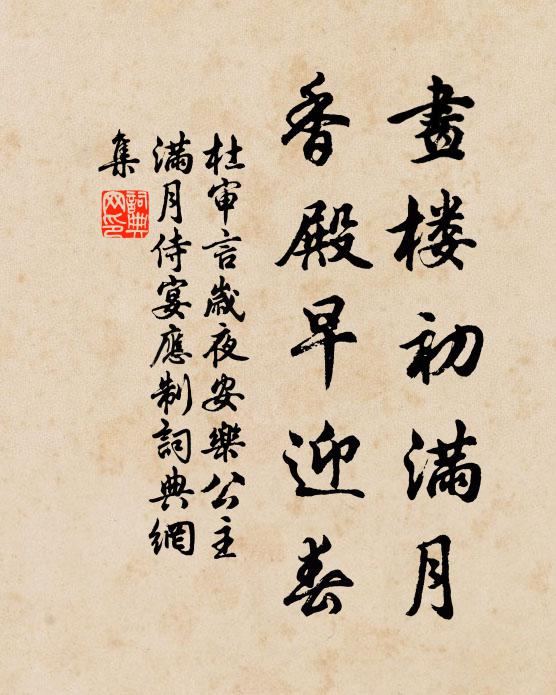 畫楼初滿月
香殿早迎春
杜审言歲夜安樂公主
滿月侍宴應制詞典網
集
詞典
网印